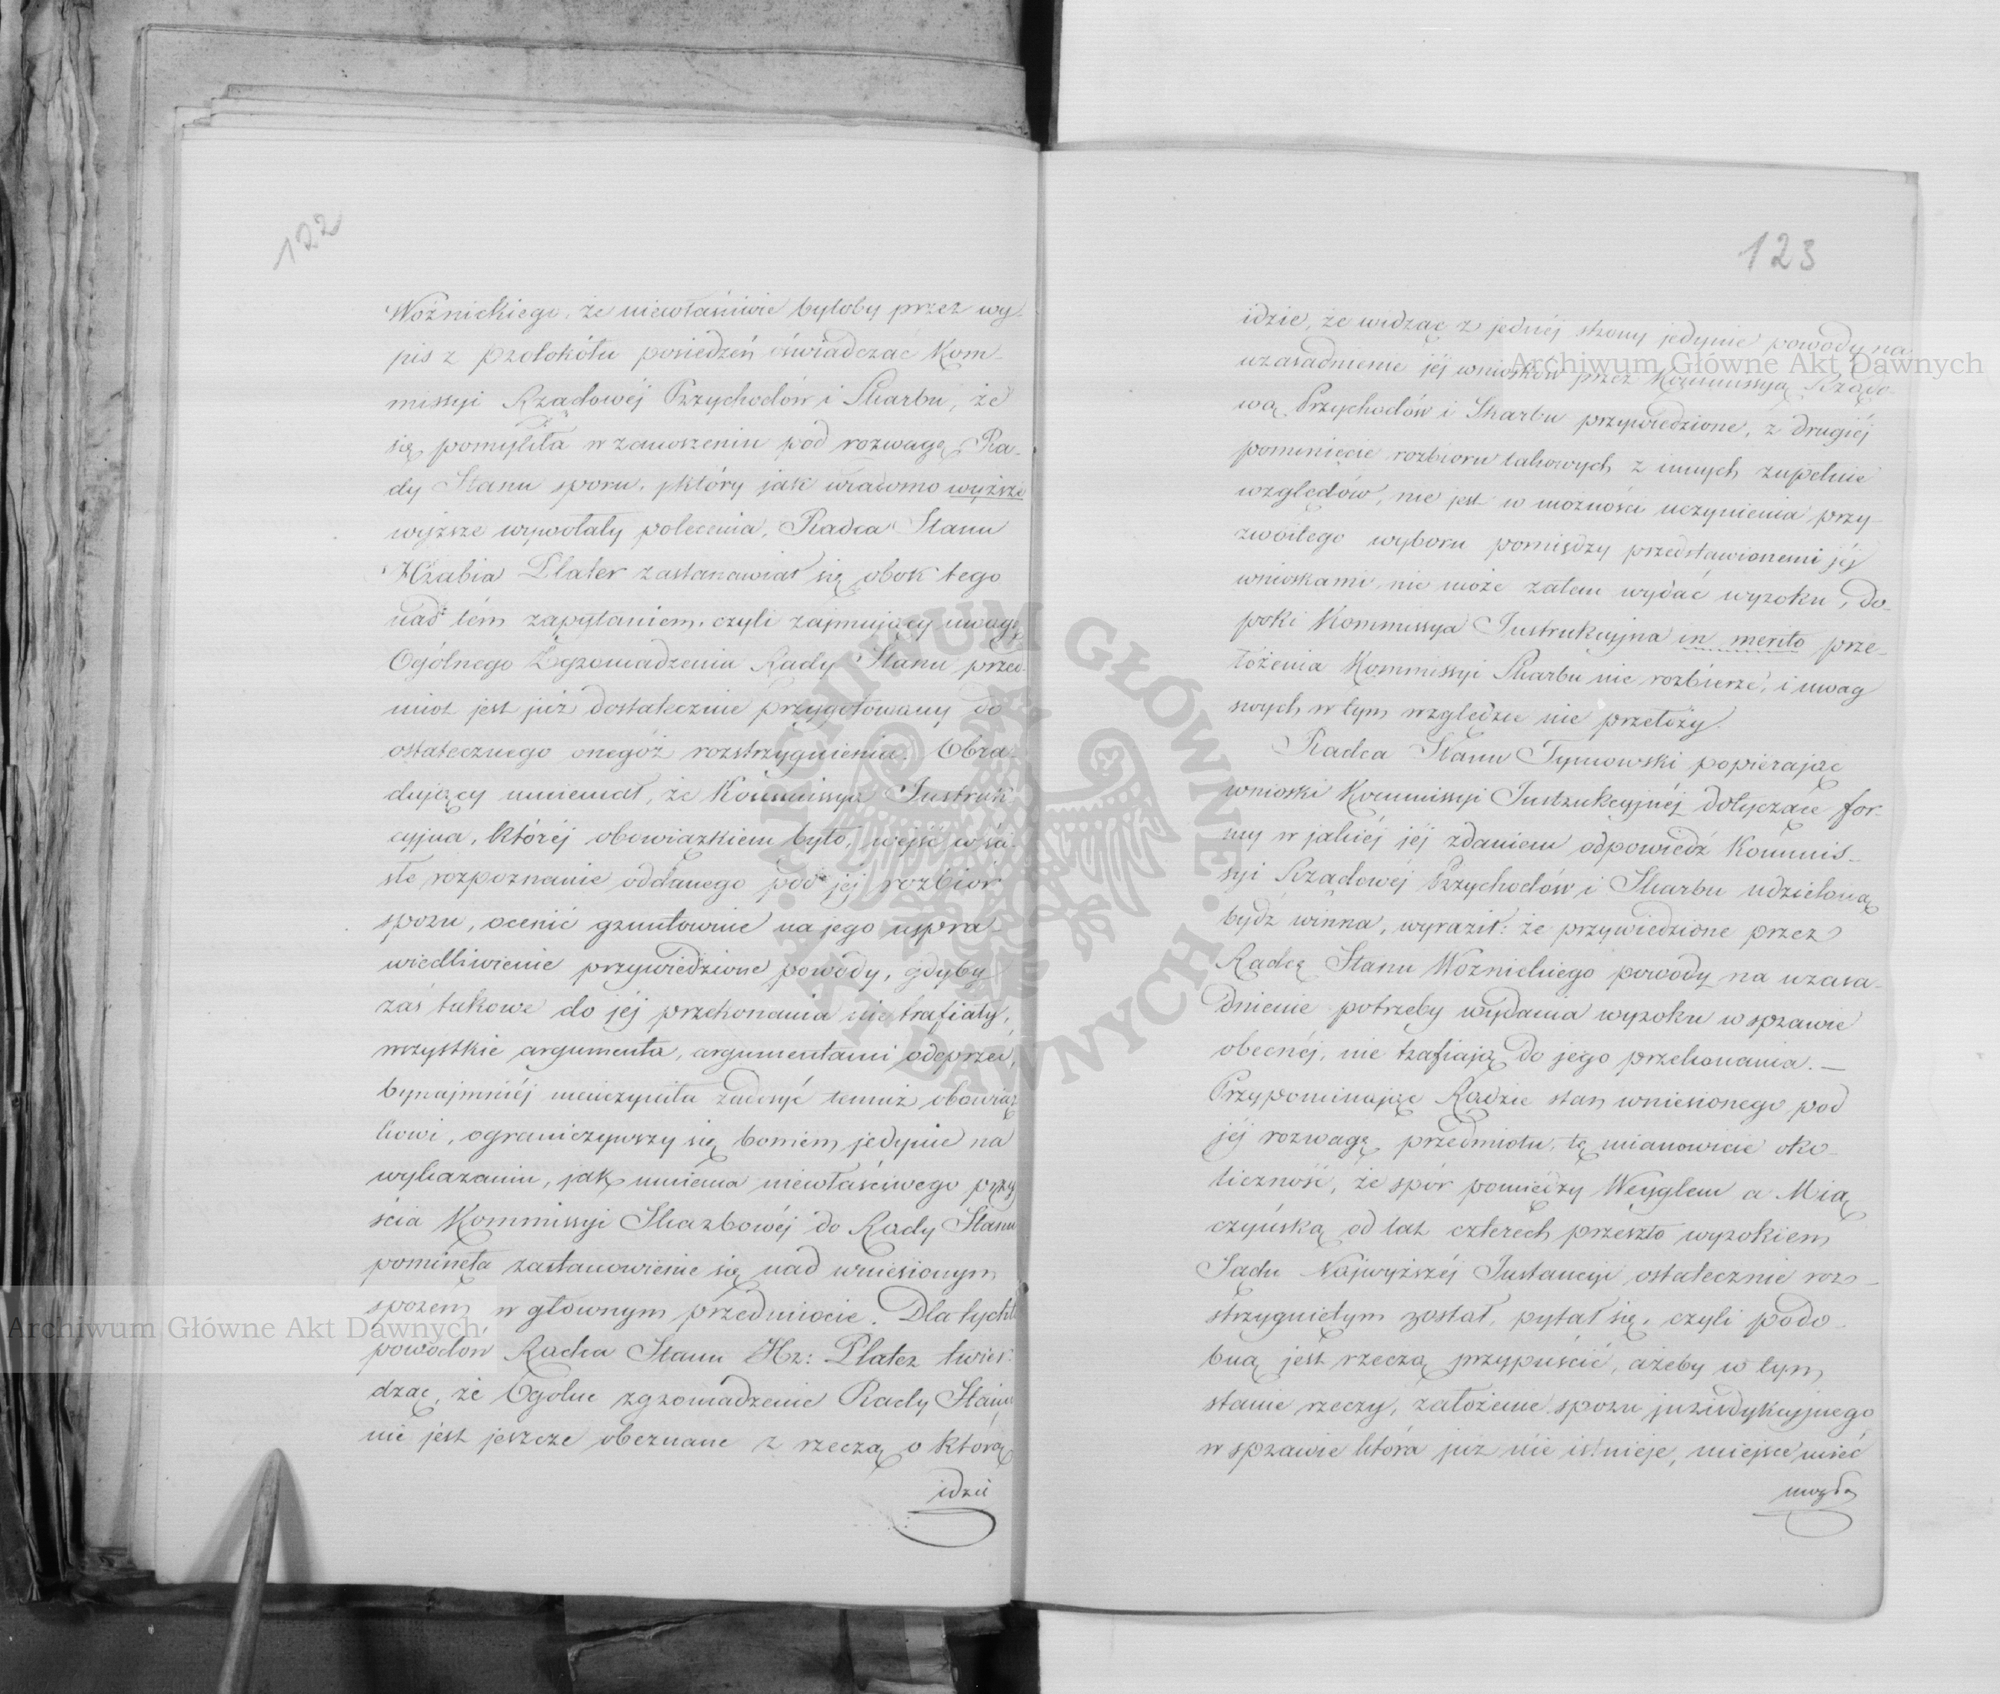 122
Woźnickiego, że niewłaściwie byłoby przez wy-
pis z protokółu posiedzeń oświadczać Kom-
missyi Rządowéj Przychodów i Skarbu, że
się pomyliła w zanoszeniu pod rozwagę Ra-
dy Stanu sporu, który jak wiadomo wyższe
wyższe wywołały polecenia. Radca Stanu
Hrabia Plater zastanawiał się obok tego
nad tém zapytaniem, czyli zajmujący uwagę
Ogólnego Zgromadzenia Rady Stanu przed-
miot jest już dostatecznie przygotowany do
ostatecznego onegóż rozstrzygnienia. Obra-
dujący mniemał, że Kommissya Instruk-
cyjna, któréj obowiązkiem było, wejść w ści-
słe rozpoznanie oddanego pod jéj rozbiór
sporu, ocenić gruntownie na jego uspra-
wiedliwienie przywiedzione powody, gdyby
zaś takowe do jéj przekonania nie trafiały,
wszystkie argumenta, argumentami odeprzeć,
bynajmniéj nieuczyniła zadosyć temuż obowiąz-
kowi, ograniczywszy się bowiem jedynie na
wykazaniu, jak mniema niewłaściwego przyj-
ścia Kommissyi Skarbowéj do Rady Stanu
pominęła zastanowienie się nad wniesionym
sporem w głównym przedmiocie. Dla tych
powodów Radca Stanu Hr: Plater twier-
dząc, że Ogólne zgromadzenie Rady Stanu
nie jest jeszcze obeznane z rzeczą o którą
idzie
123
idzie, że widząc z jednéj strony jedynie powody na
uzasadnienie jéj wniosków przez Kommissyą Rządo-
wą Przychodów i Skarbu przywiedzione, z drugiéj
pominięcie rozbioru takowych z innych zupełnie
względów, nie jest w możności uczynienia przy-
zwoitego wyboru pomiędzy przedstawionemi jéj
wnioskami, nie może zatem wydać wyroku, do-
póki Kommissya Instrukcyjna in merito prze-
łożenia Kommissyi Skarbu nie rozbierze, i uwag
swych w tym względzie nie przełoży.
Radca Stanu Tymowski popierając
wnioski Kommissyi Instrukcyjnéj dotyczące for-
my w jakiéj jéj zdaniem odpowiedź Kommis-
syi Rządowéj Przychodów i Skarbu udzieloną
być winna, wyraził: że przywiedzione przez
Radcę Stanu Woźnickiego powody na uzasa-
dnienie potrzeby wydania wyroku w sprawie
obecnéj, nie trafiają do jego przekonania. —
Przypominając Radzie stan wniesionego pod
jéj rozwagę przedmiotu, tę mianowicie oko-
liczność, że spór pomiędzy Weyglem a Mią-
czyńską od lat czterech przeszło wyrokiem
Sądu Najwyższéj Instancyi ostatecznie roz-
strzygniętym został, pytał się, czyli podo-
bną jest rzeczą przypuścić, ażeby w tym
stanie rzeczy, założenie sporu jurisdykcyjnego
w sprawie która już nie istnieje, miejsce mieć
mogło
Archiwum Główne Akt Dawnych
Archiwum Główne Akt Dawnych
ARCHIWUM GŁÓWNE AKT DAWNYCH